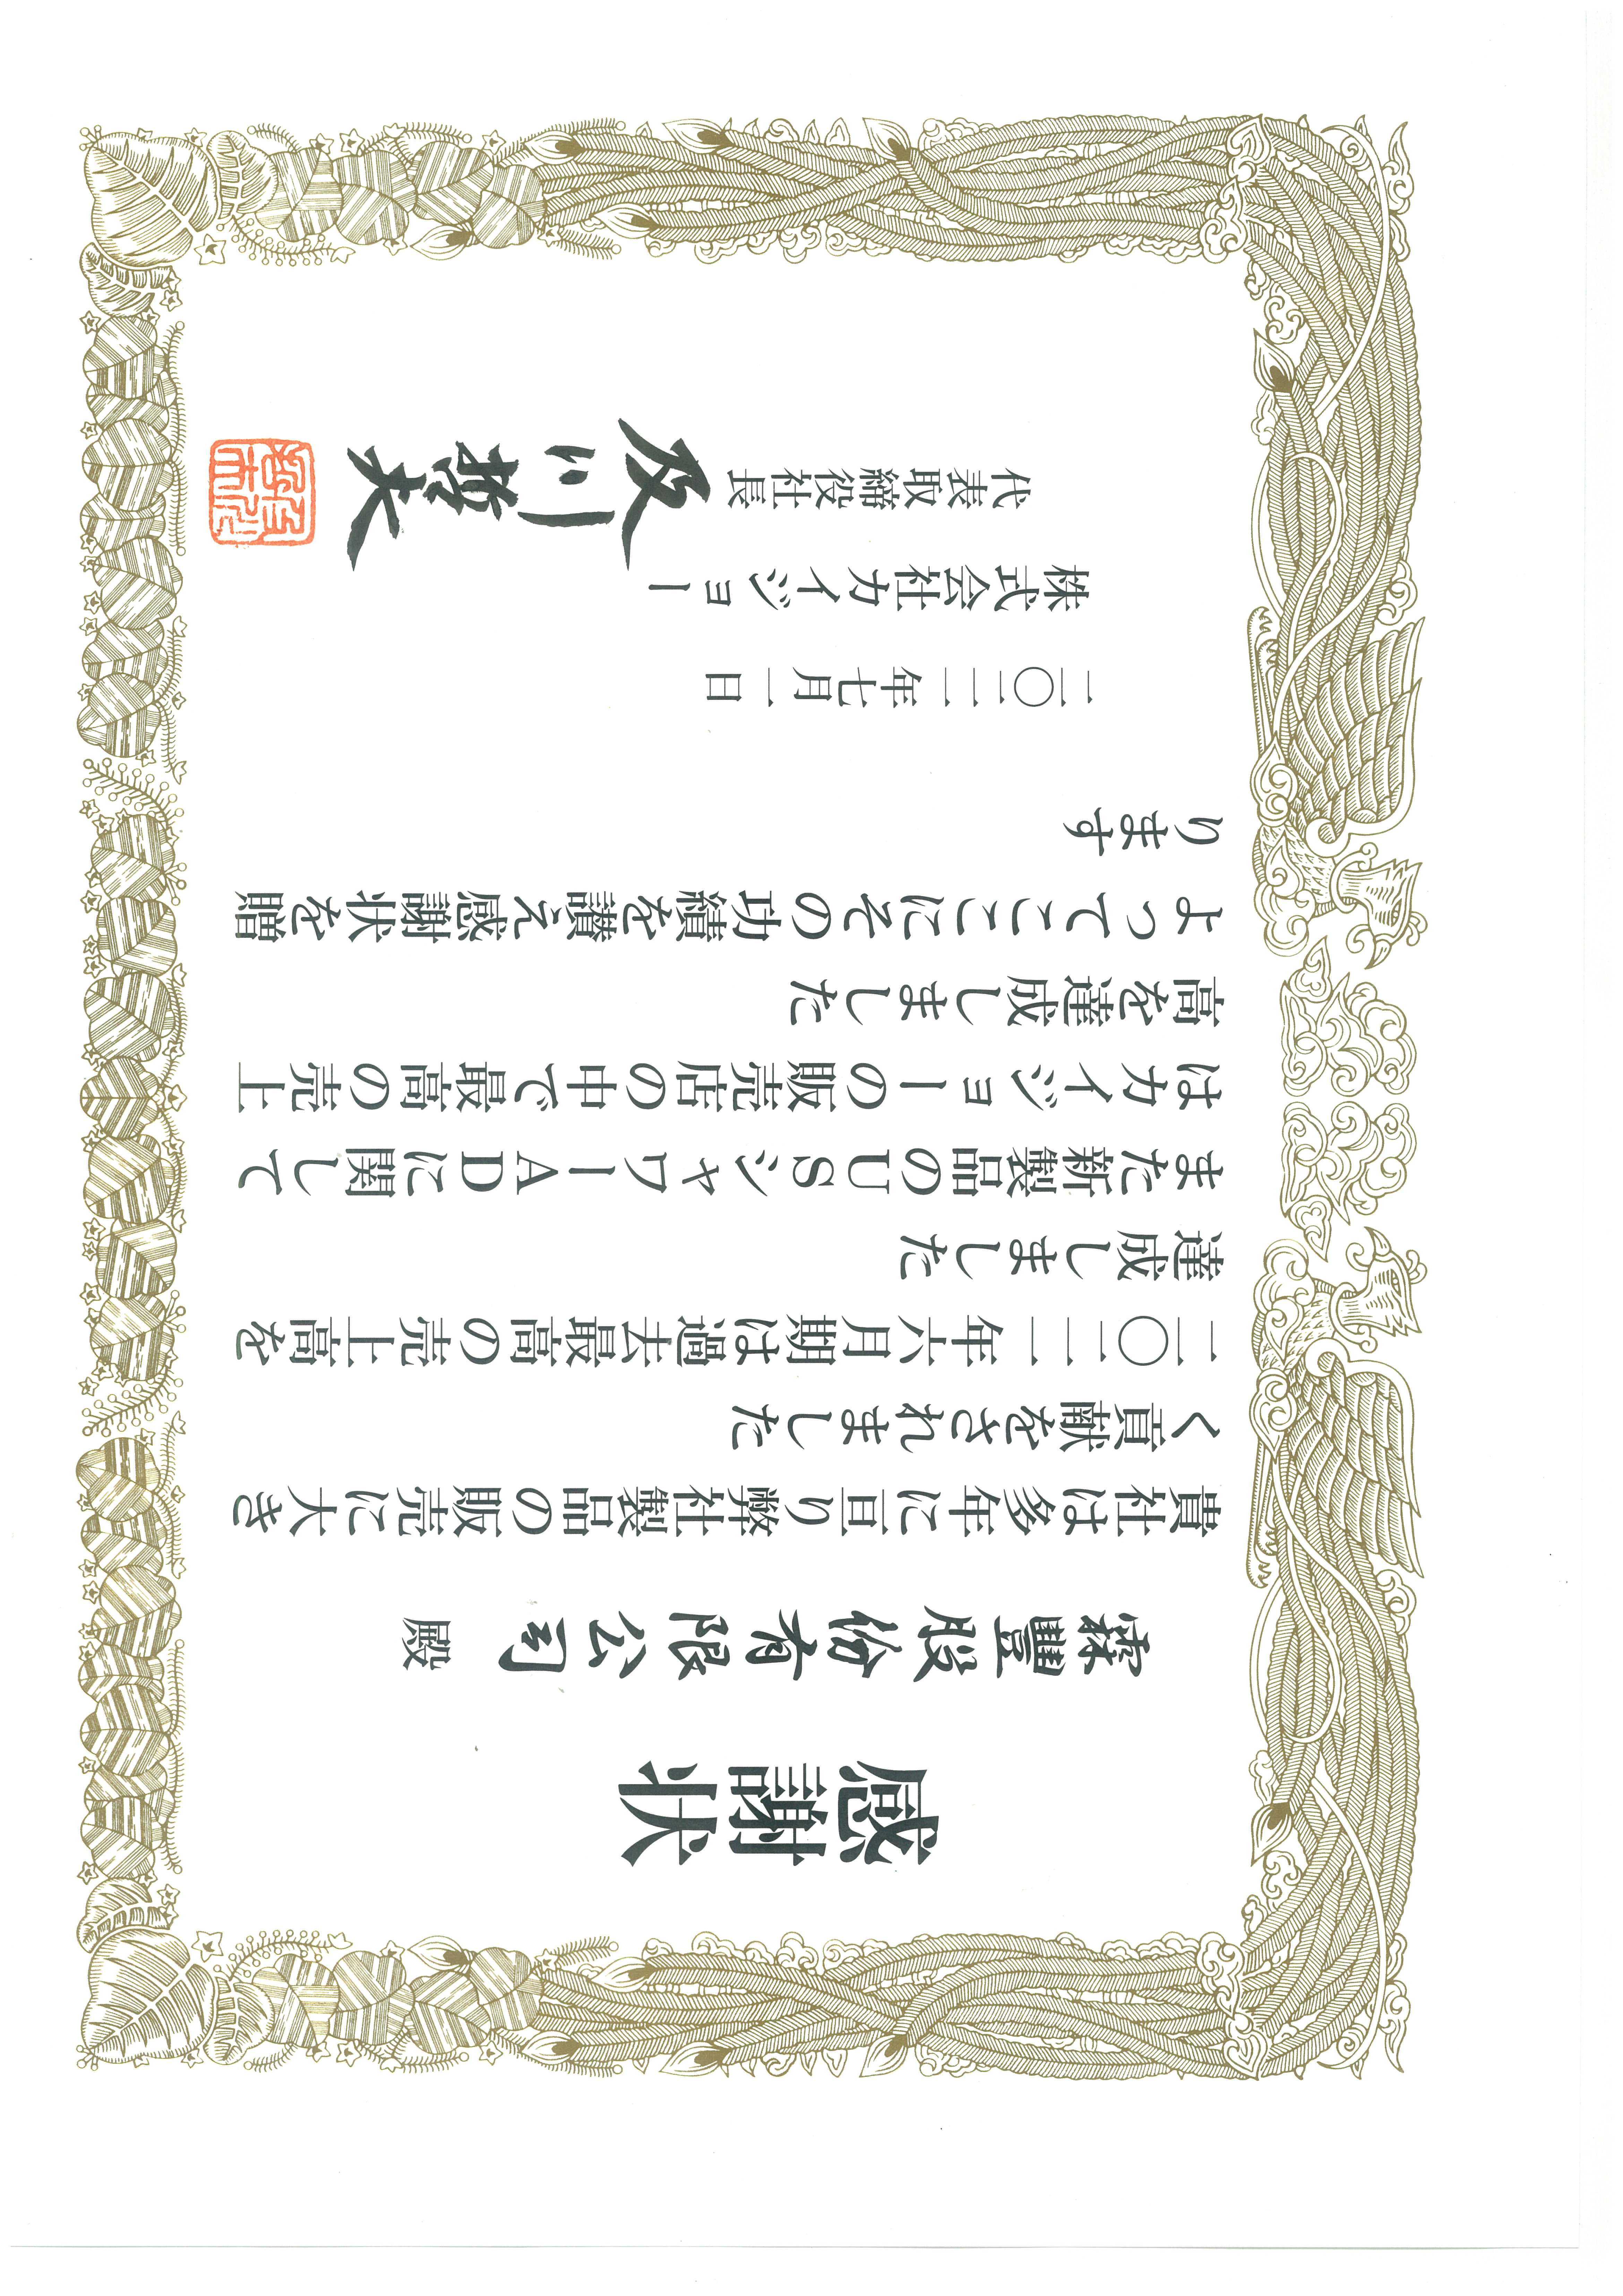 感謝状
霖豐股份有限公司 殿
貴社は多年に亘り弊社製品の販売に大き
く貢献をされました
二〇二一年六月期は過去最高の売上高を
達成しました
また新製品のUSシャワーADに関して
はカイジョーの販売店の中で最高の売上
高を達成しました
よってここにその功績を讃え感謝状を贈
ります
二〇二一年七月一日
株式会社カイジョー
代表取締役社長 及川哲夫